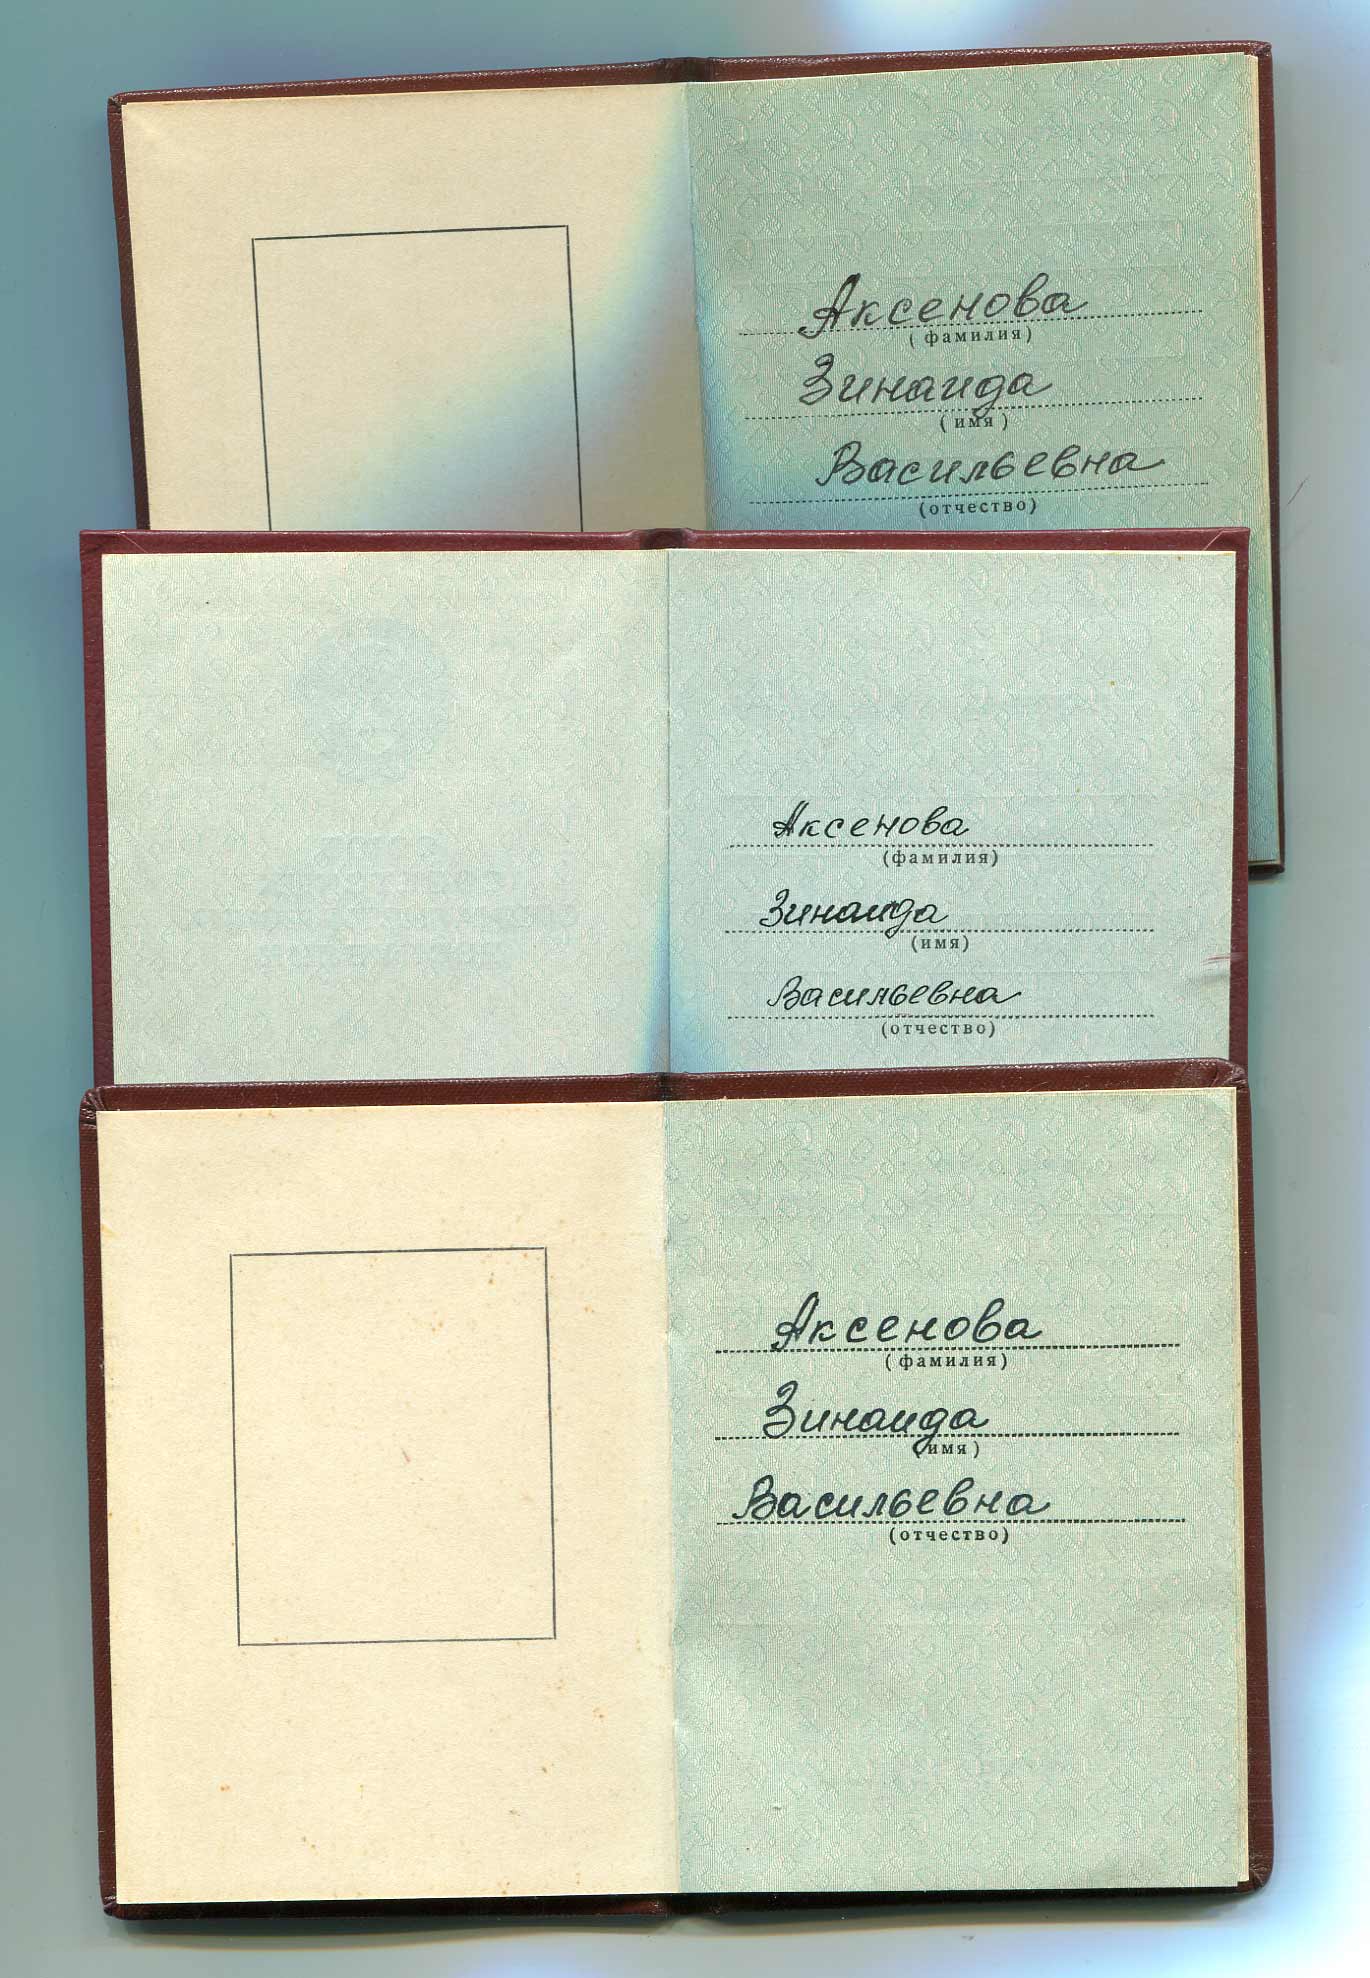 Аксенова
(фамилия)
Зинаида
(имя)
Васильевна
(отчество)
Аксенова
(фамилия)
Зинаида
(имя)
Васильевна
(отчество)
Аксенова
(фамилия)
Зинаида
(имя)
Васильевна
(отчество)